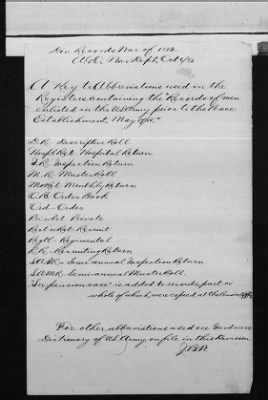 Div. Records War of 1812.
A.G.O. War Dept, Oct 1/86
A Key to Abbreviations used in the
Registers containing the Records of men
enlisted in the US Army prior to the Peace
Establishment, May 17/15."
D.R. Descriptive Roll
Hospl Ret. Hospital Return
I.R. Inspection Return
M.R. Muster Roll
Mo Ret. Monthly Return
O.B. Order Book
Ord - Order
Private
Recruit
Regtl - Regimental
R.R. - Recruiting Return
S.A.I.R. - Semi annual Inspection Return
S.A.M.R. Semi-annual Muster Roll.
"See pension case" is added to records part or
whole of which were copied at the Pension Office
For other abbreviations used see Gardner's
Dictionary of U.S. Army on file in this Division.